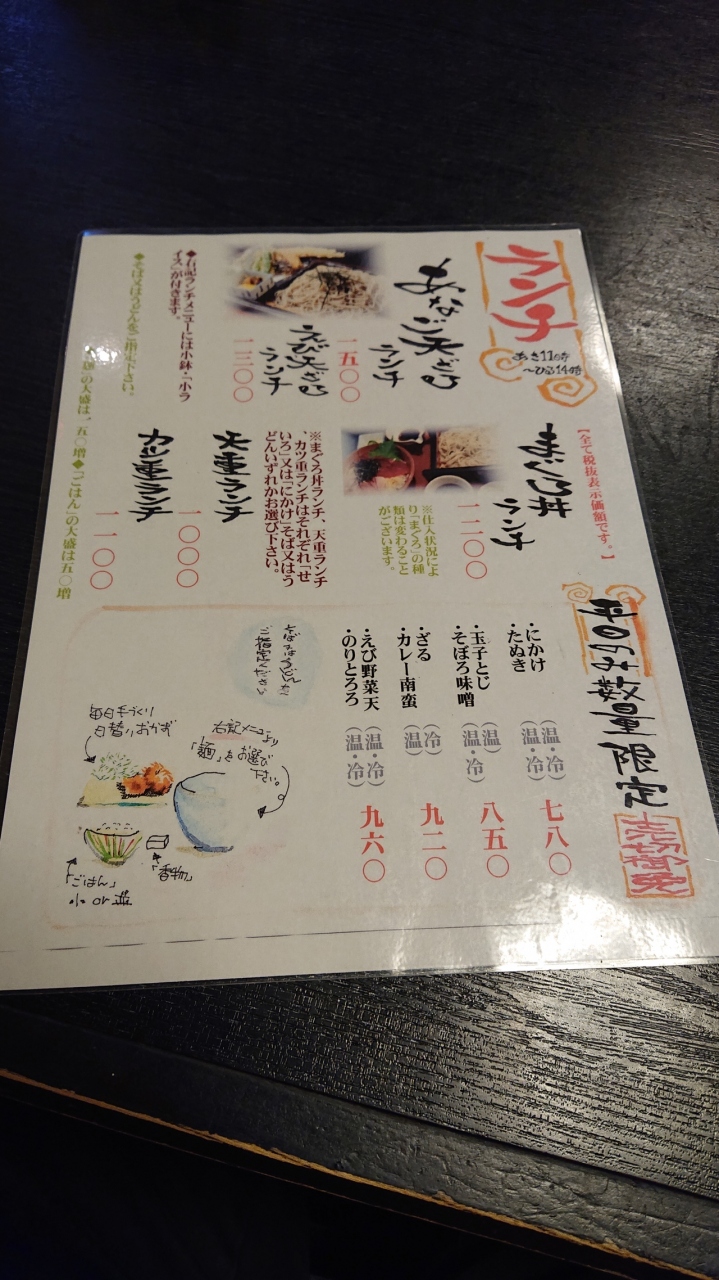 ランチ
あさ11時
～ひる14時
あなご天ざる
ランチ
一五〇〇
えび天ざる
ランチ
一三〇〇
◆右記ランチメニューには小鉢・「小ラ
イス」が付きます。
◆そば又はうどんをご指定下さい。
の大盛は、五〇増◆「ごはん」の大盛は五〇増
【全て税抜表示価額です。】
まぐろ丼
ランチ
一二〇〇
※仕入状況によ
り「まぐろ」の種
類は変わること
がございます。
※まぐろ丼ランチ、天重ランチ
、カツ重ランチはそれぞれ「せ
いろ」又は「にかけ」そば又はう
どんいずれかお選び下さい。
天重ランチ
一〇〇〇
カツ重ランチ
一一〇〇
平日のみ数量限定
売切御免
・にかけ（温・冷）
・たぬき（温・冷）
七八〇
・玉子とじ（温）
・そぼろ味噌（温・冷）
八五〇
・ざる（冷）
・カレー南蛮（温）
九二〇
・えび野菜天（温・冷）
・のりとろろ（温・冷）
九六〇
そばまたはうどんを
ご指定ください
右記メニューより
「麺」をお選び
下さい。
毎日手づくり
日替りおかず
「香物」
「ごはん」
小 or 並